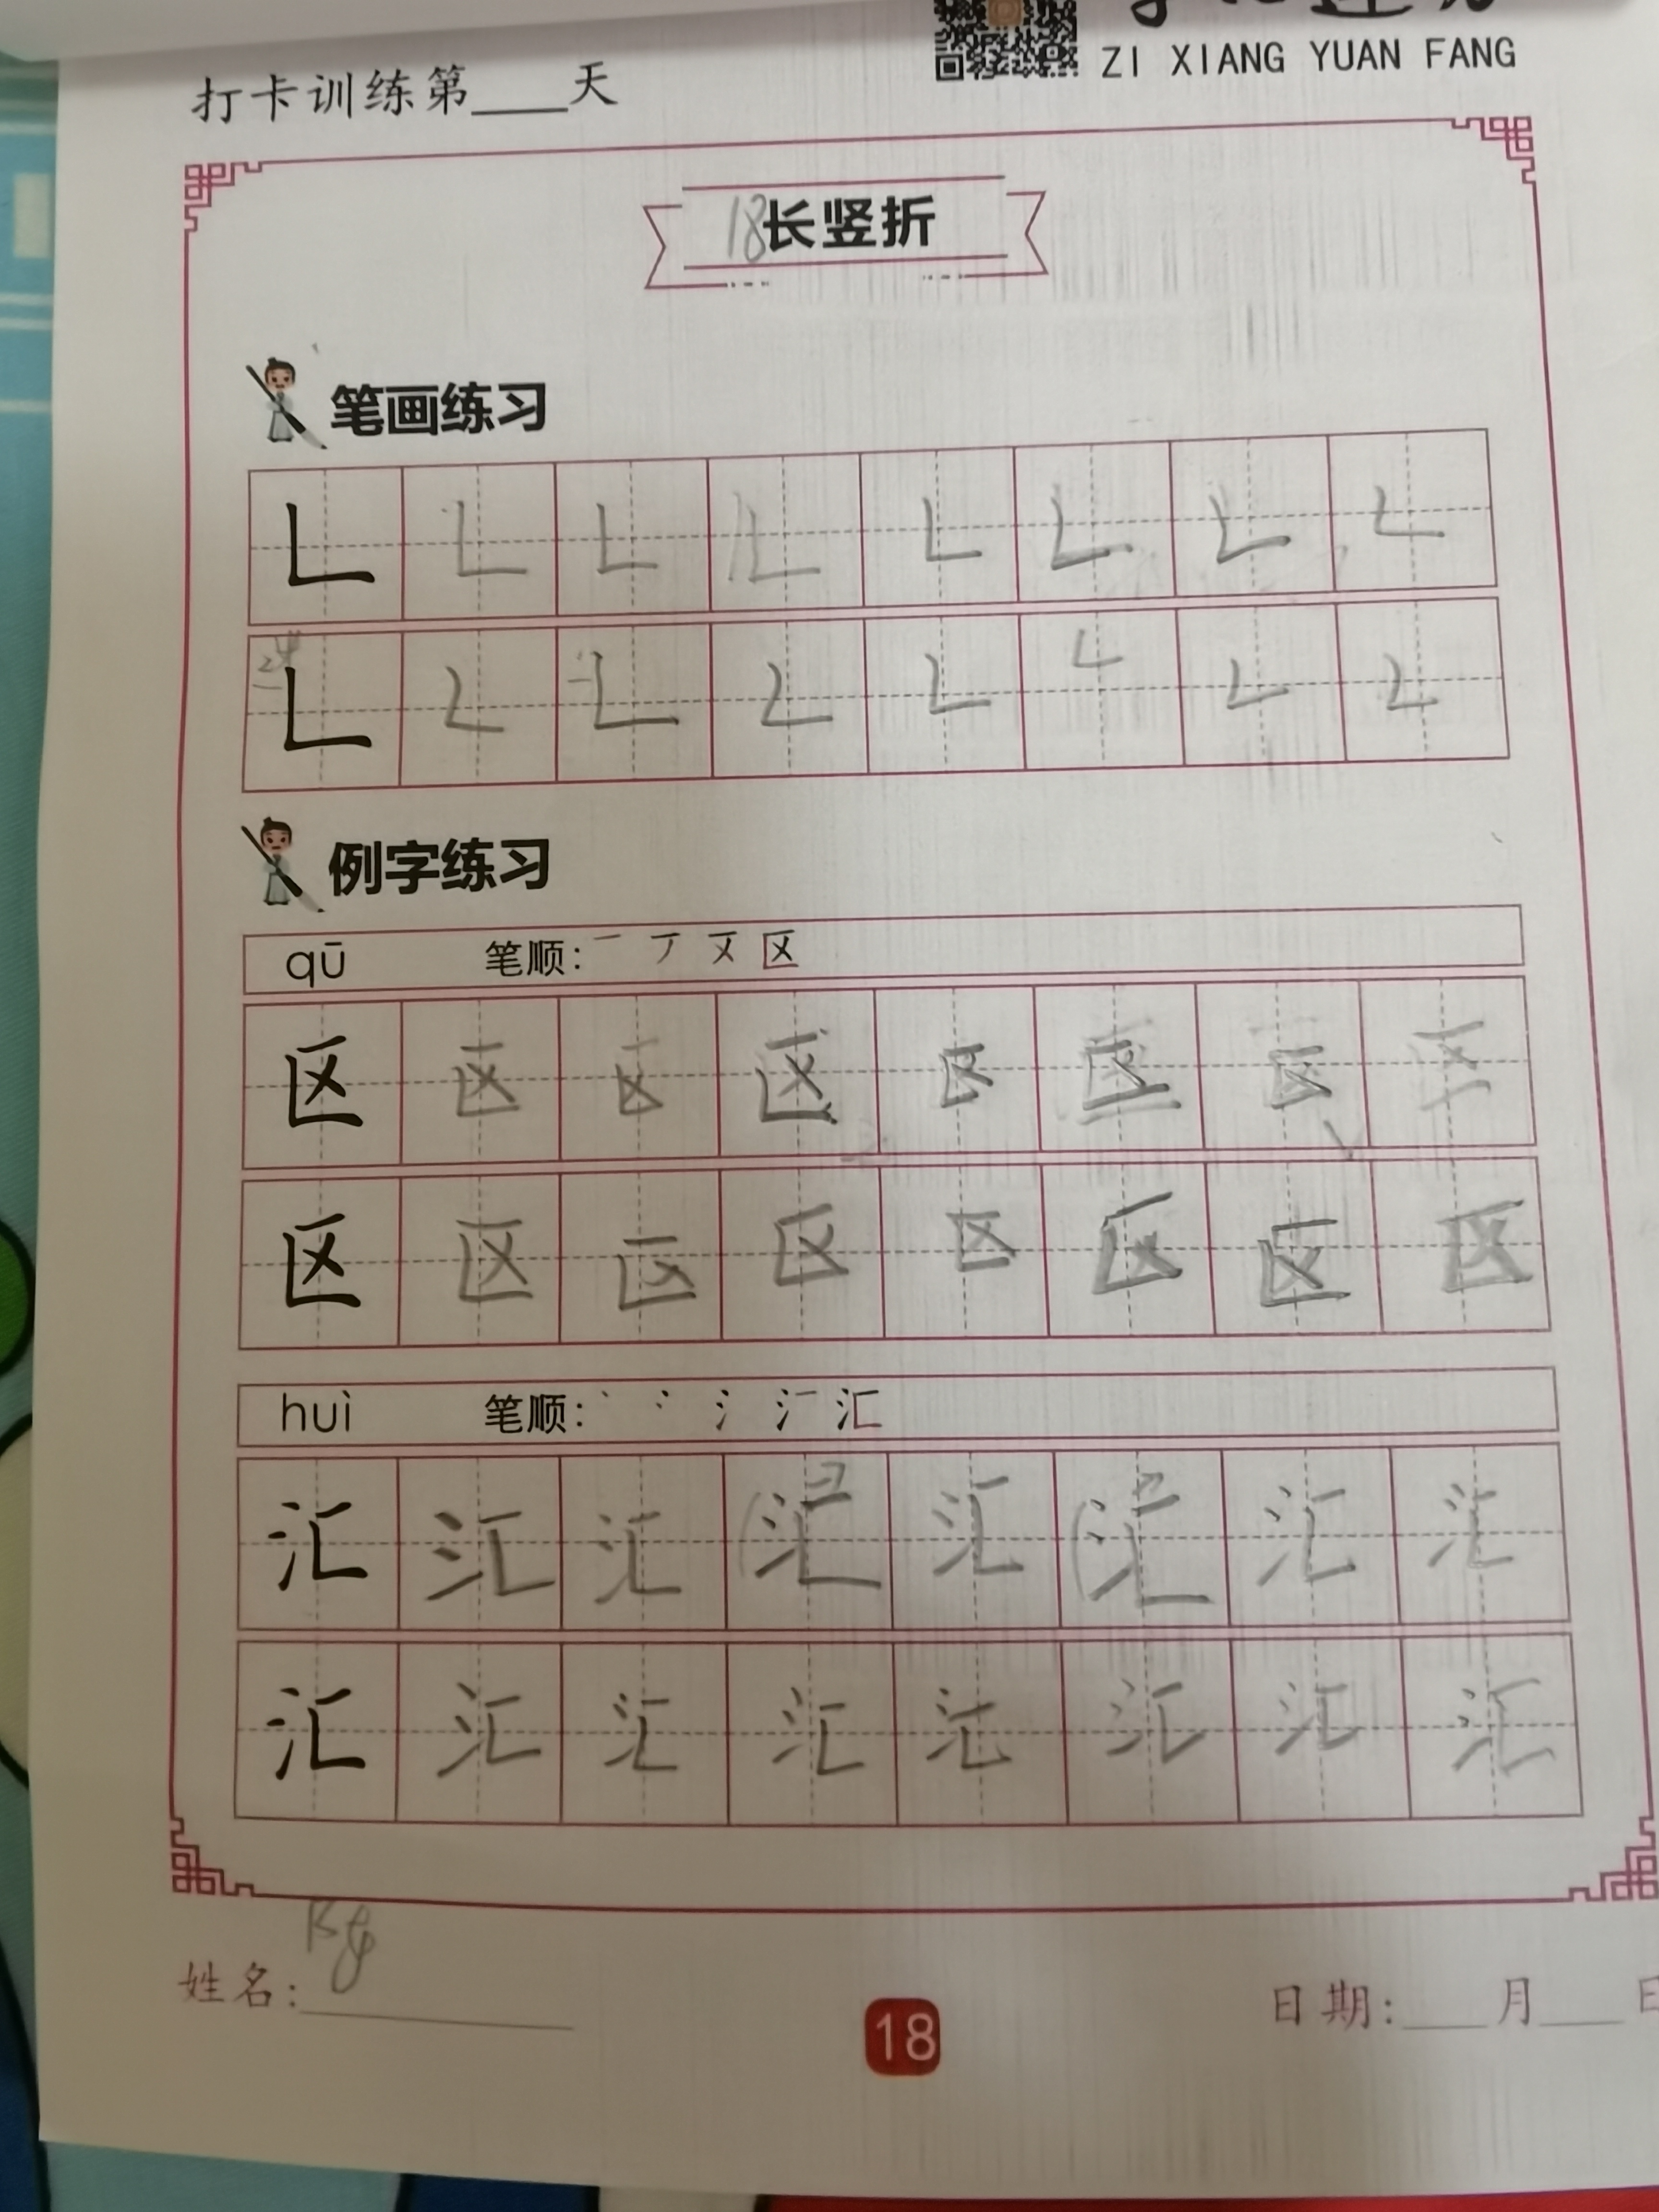 ZI XIANG YUAN FANG
打卡训练第____天
18长竖折
笔画练习
𠃊 𠃊 𠃊 𠃊 𠃊 𠃊 𠃊 𠃊
24 𠃊 𠃊 𠃊 𠃊 𠃊 𠃊 𠃊 𠃊
例字练习
qū 笔顺: 一 丆 区
区 区 区 区 区 区 区 区
区 区 区 区 区 区 区 区
huì 笔顺: 丶 冫 氵 汇
汇 汇 汇 汇 汇 汇 汇 汇
汇 汇 汇 汇 汇 汇 汇 汇
姓名:
18
日期:___月___日